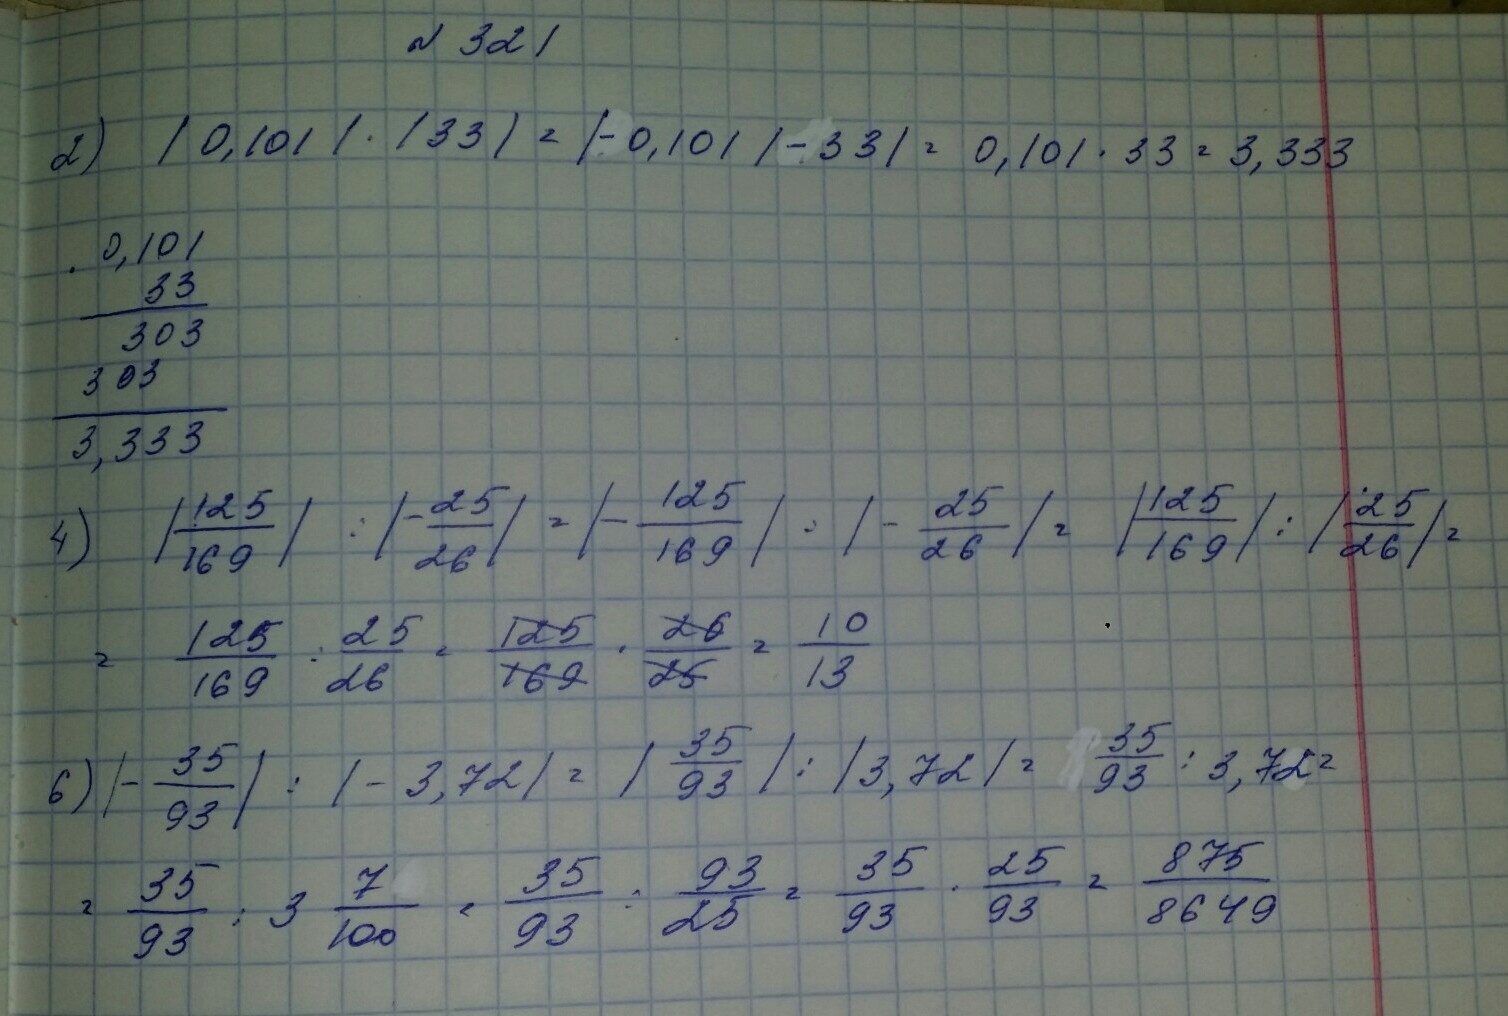 № 321
2) |0,101| · |33| = |-0,101| |-33| = 0,101 · 33 = 3,333
0,101
33
303
303
3,333
4) |125/169| : |-25/26| = |-125/169| : |-25/26| = |125/169| : |25/26| =
= 125/169 : 25/26 = 125/169 · 26/25 = 10/13
6) |-35/93| : |-3,72| = |35/93| : |3,72| = 35/93 : 3,72 =
= 35/93 : 3 7/100 = 35/93 : 93/25 = 35/93 · 25/93 = 875/8649